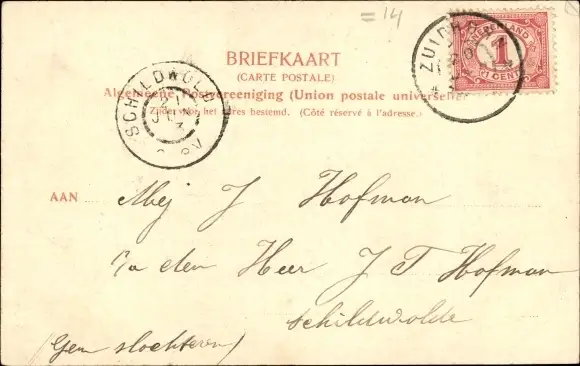 =14
BRIEFKAART
(CARTE POSTALE)
Algemeene Postvereeniging (Union postale universelle)
Zijde voor het adres bestemd. (Côté réservé à l'adresse.)
NEDERLAND
1
CENT
ZUIDH
SCHILDWOLD
21
AAN
Mej J Hofman
p/a den Heer J T Hofman
Schildwolde
(Gem slochteren)